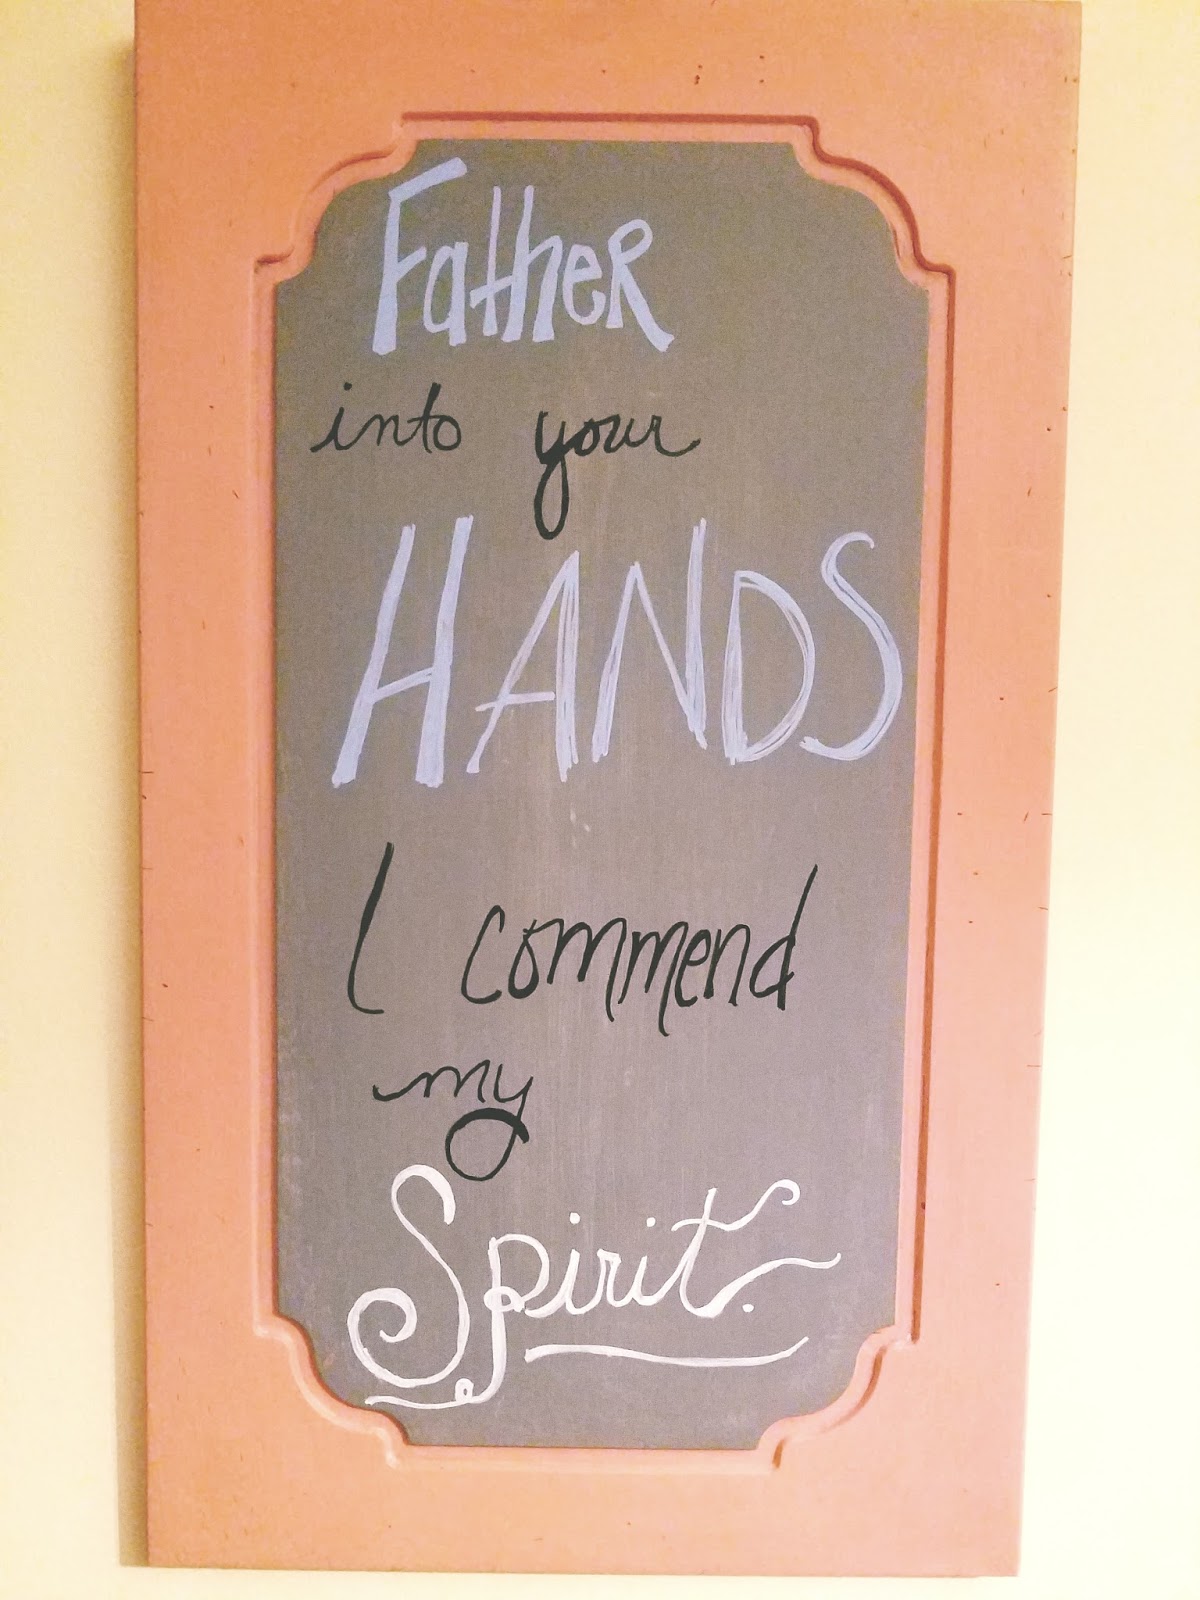 Father
into your
HANDS
I commend
my
Spirit.